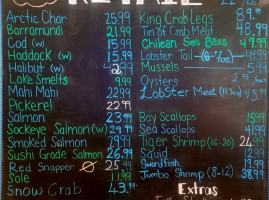 RETAIL
Arctic Char 25.99
Barramundi 21.99
Cod (w) 15.99
Haddock (w) 15.99
Halibut (w)
Lake Smelts 9.99
Mahi Mahi 22.99
Pickerel 22.99
Salmon 23.99
Sockeye Salmon (w) 29.99
Smoked Salmon 79.99
Sushi Grade Salmon 26.99
Red Snapper 25.99
Sole 11.99
Snow Crab 43.99
King Crab Legs 89.99
Tin of Crab Meat 48.99
Chilean Sea Bass 49.99
Lobster Tail
Mussels 5.99
Oysters
Lobster Meat
Bay Scallops 15.99
Sea Scallops 41.99
Tiger Shrimp (16-20) 24.99
Squid 12.99
Swordfish 19.99
Jumbo Shrimp (8-12) 38.99
Extras